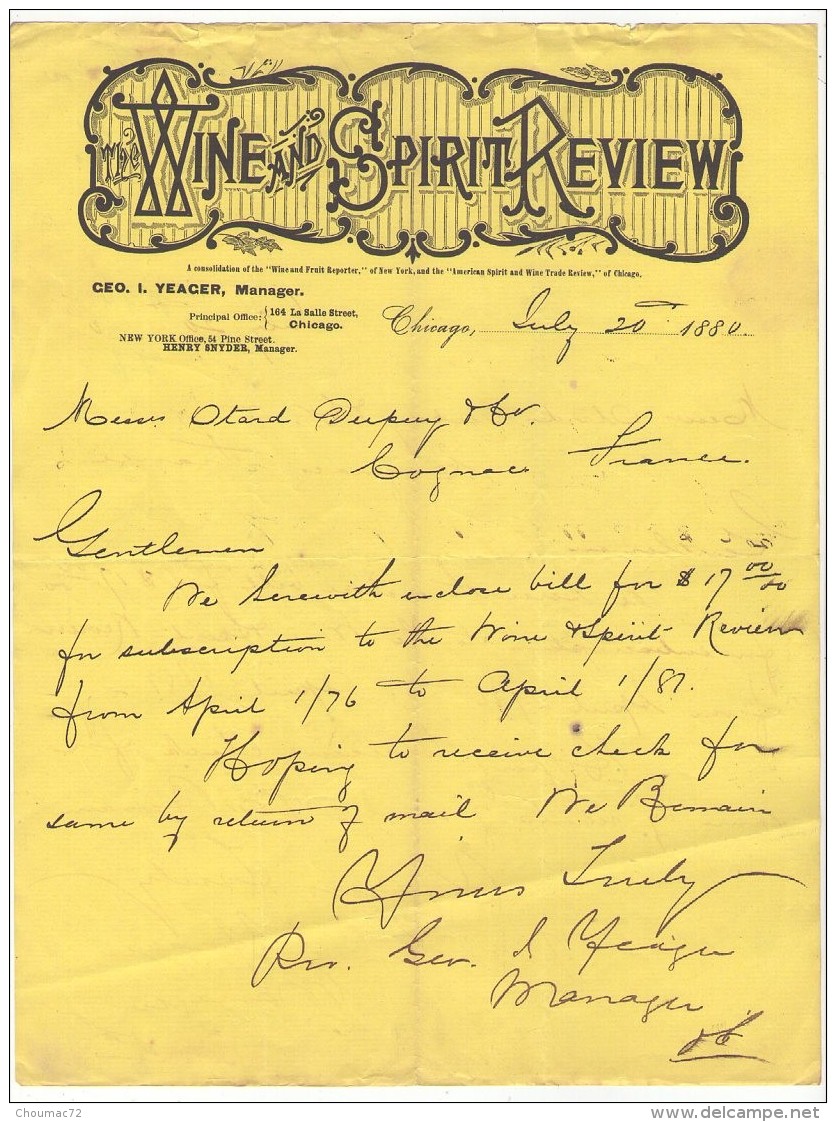 THE WINE AND SPIRIT REVIEW
A consolidation of the "Wine and Fruit Reporter," of New York, and the "American Spirit and Wine Trade Review," of Chicago.
GEO. I. YEAGER, Manager.
Principal Office: { 164 La Salle Street, Chicago.
NEW YORK Office, 54 Pine Street.
HENRY SNYDER, Manager.
Chicago, July 20th 1880.
Messrs Otard Dupuy & Co.
Cognac France.
Gentlemen
We herewith enclose bill for $17 00/00
for subscription to the Wine & Spirit Review
from April 1/76 to April 1/81.
Hoping to receive check for
same by return of mail We Remain
Yours Truly
Geo. I Yeager
Manager
Choumac72
www.delcampe.net